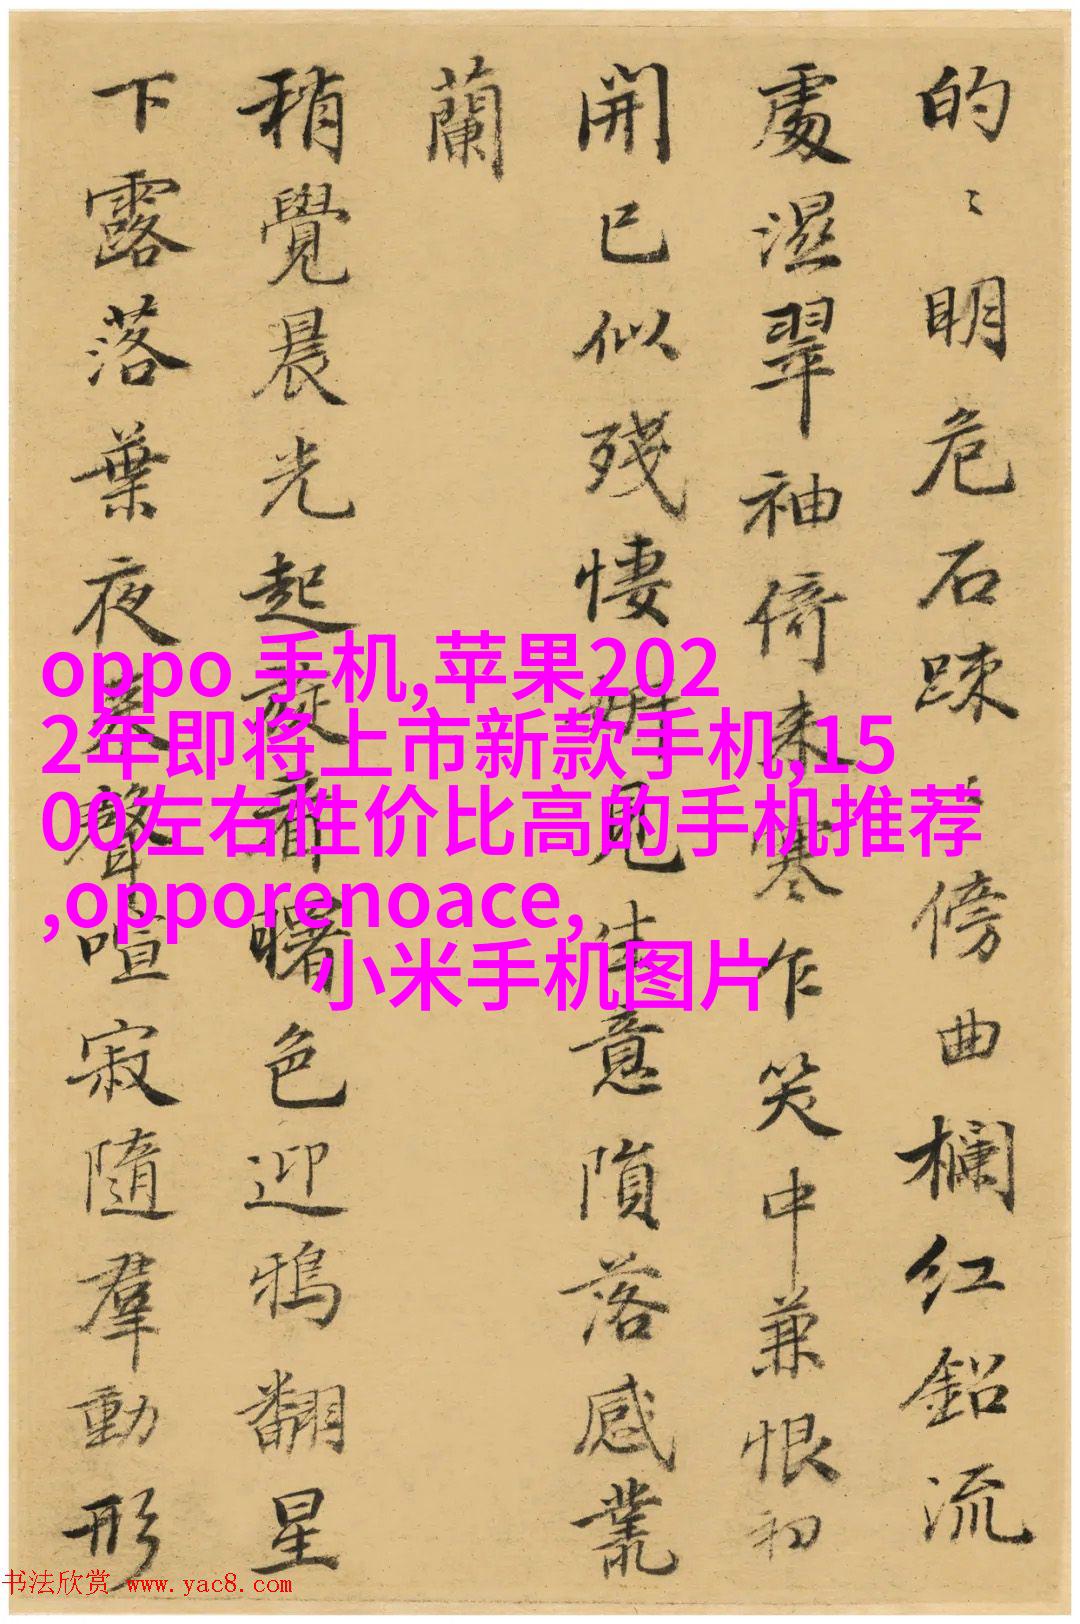 的〻明危石踈〻傍曲欄红鉛流
處濕翠袖倚来寒乍笑中兼恨初
開已似残悽 見生意隕落感叢
蘭
稍覺晨光起 看曙色迎鴉翻星
下露落葉夜 聲喧寂隨羣動形
oppo 手机,苹果202
2年即将上市新款手机,15
00左右性价比高的手机推荐
,opporenoace,
小米手机图片
书法欣赏 www.yac8.com